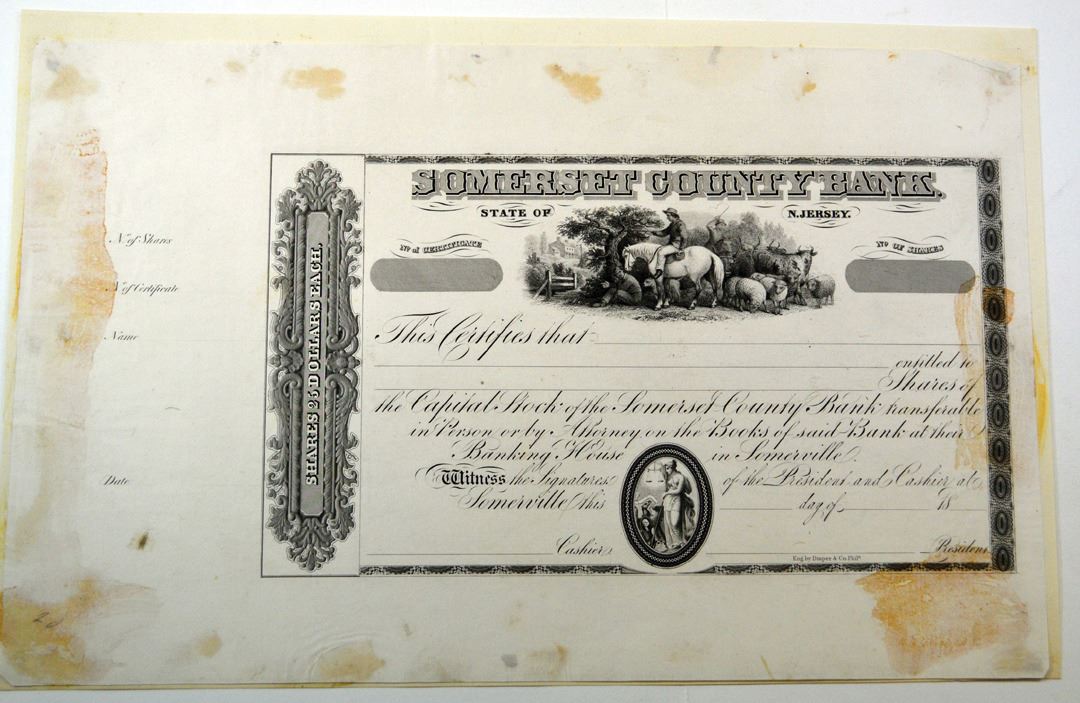 SOMERSET COUNTY BANK.
STATE OF N. JERSEY.
No of CERTIFICATE No OF SHARES
No of Shares
No of Certificate
Name
Date
SHARES 25 DOLLARS EACH.
This Certifies that
entitled to
Shares of
the Capital Stock of the Somerset County Bank transferable
in Person or by Attorney on the Books of said Bank at their
Banking House in Somerville.
Witness the Signatures of the President and Cashier at
Somerville this day of 18
Cashier President
Eng. by Draper & Co. Phila